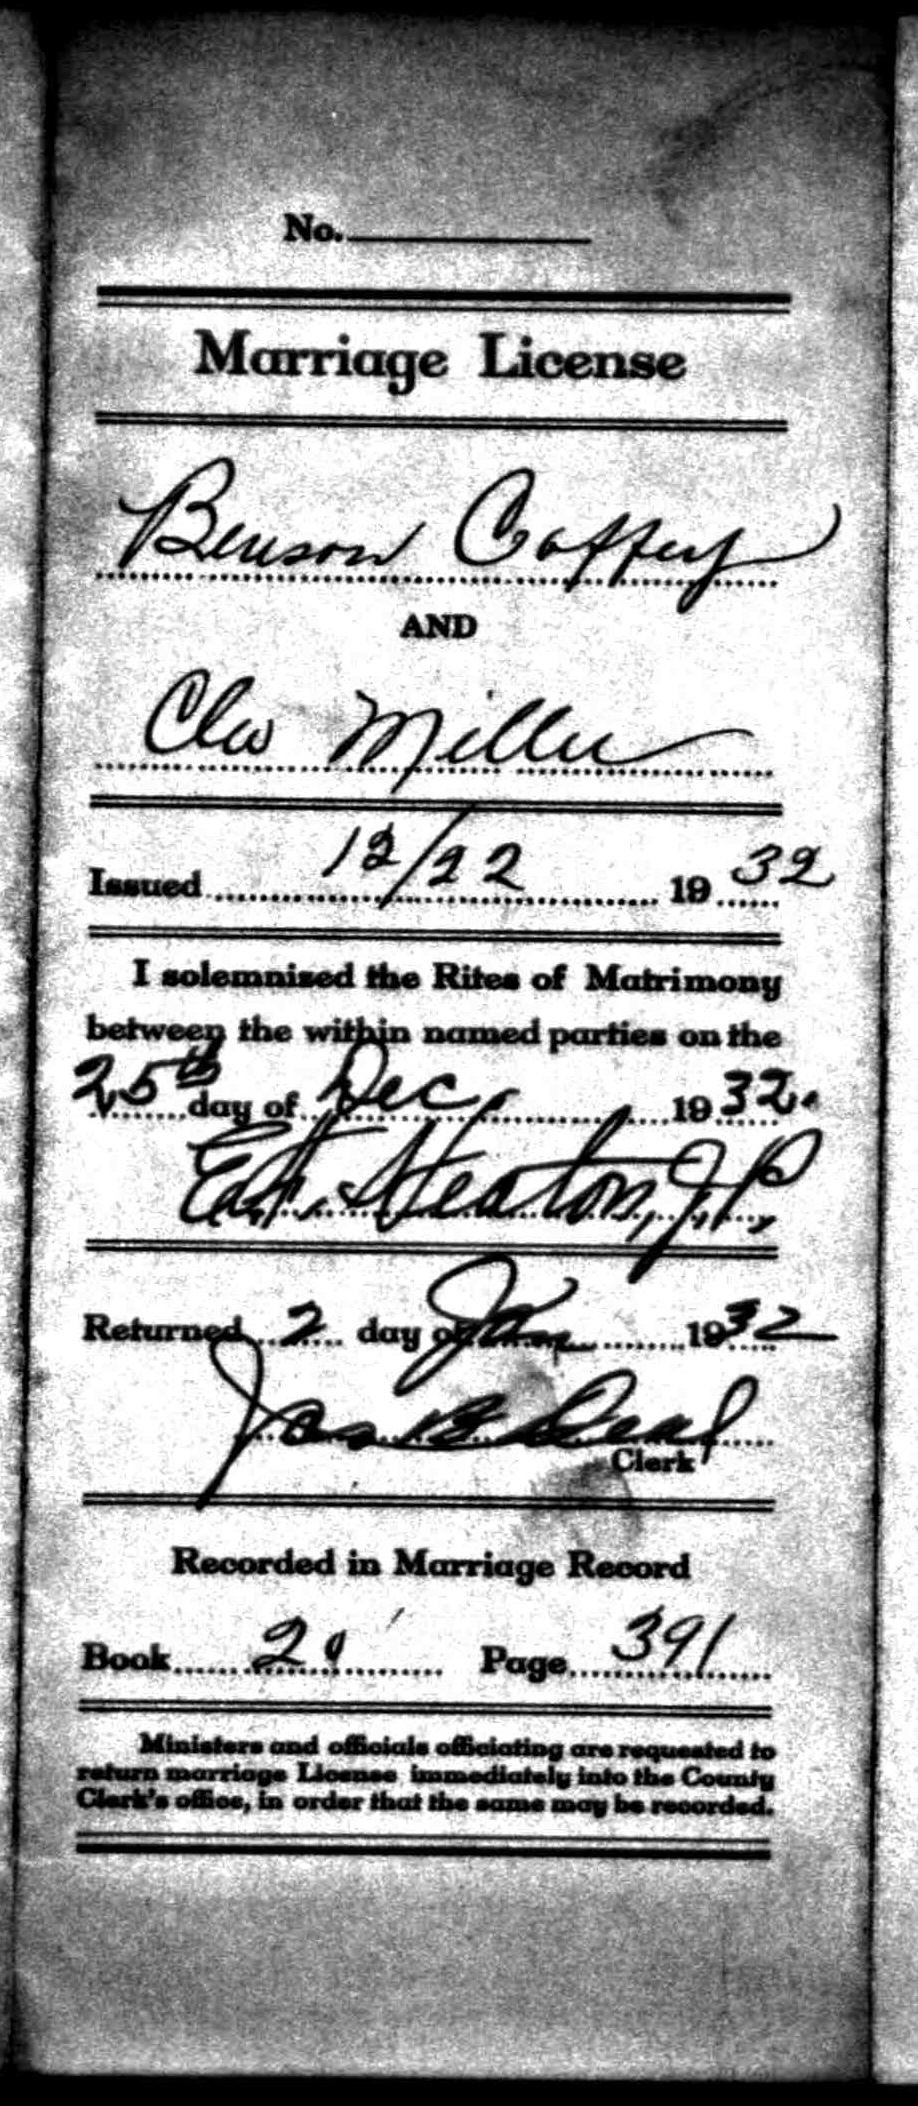 No.
Marriage License
Benson Coffey
AND
Cleo Miller
Issued 12/22 1932
I solemnized the Rites of Matrimony
between the within named parties on the
25th day of Dec, 1932.
Heaton, J.P.
Returned 2 day of Jan 1932
Jas B Deal
Clerk
Recorded in Marriage Record
Book Page 391
Ministers and officials officiating are requested to
return marriage License immediately into the County
Clerk's office, in order that the same may be recorded.